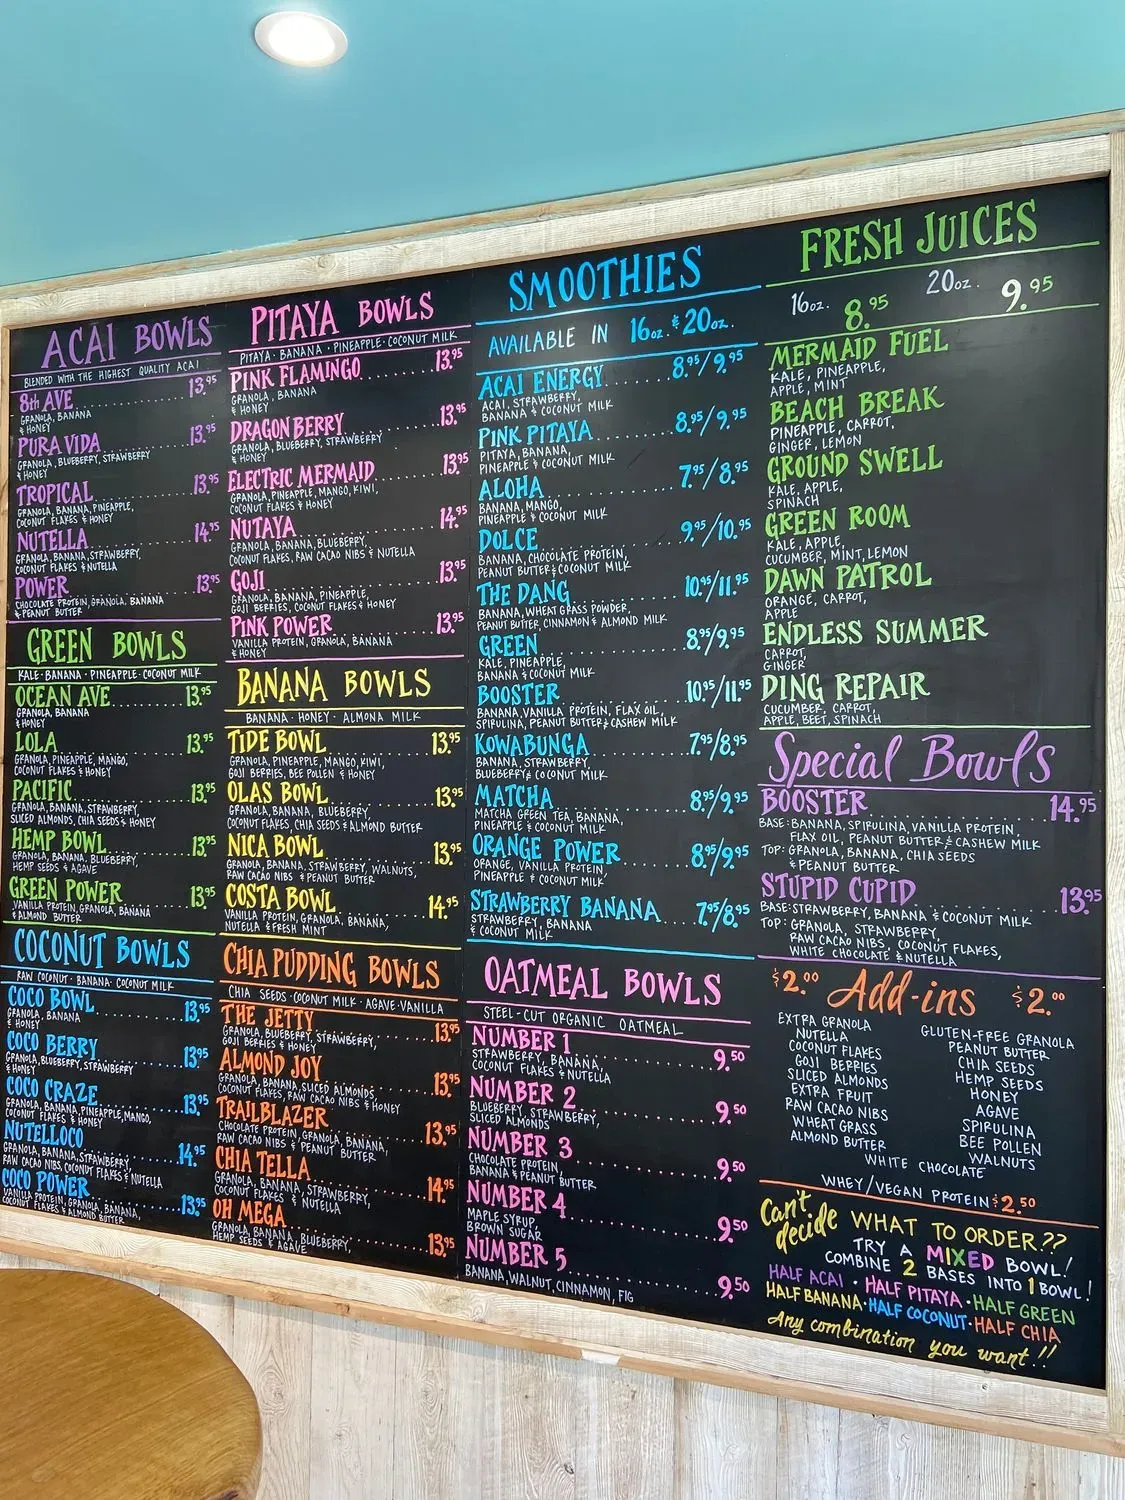 ACAI BOWLS
BLENDED WITH THE HIGHEST QUALITY ACAI
8th AVE 13.95
GRANOLA, BANANA
& HONEY
PURA VIDA 13.95
GRANOLA, BLUEBERRY, STRAWBERRY
& HONEY
TROPICAL 13.95
GRANOLA, BANANA, PINEAPPLE,
COCONUT FLAKES & HONEY
NUTELLA 14.95
GRANOLA, BANANA, STRAWBERRY,
COCONUT FLAKES & NUTELLA
POWER 13.95
CHOCOLATE PROTEIN, GRANOLA, BANANA
& PEANUT BUTTER
GREEN BOWLS
KALE · BANANA · PINEAPPLE · COCONUT MILK
OCEAN AVE 13.95
GRANOLA, BANANA
& HONEY
LOLA 13.95
GRANOLA, PINEAPPLE, MANGO,
COCONUT FLAKES & HONEY
PACIFIC 13.95
GRANOLA, BANANA, STRAWBERRY,
SLICED ALMONDS, CHIA SEEDS & HONEY
HEMP BOWL 13.95
GRANOLA, BANANA, BLUEBERRY,
HEMP SEEDS & AGAVE
GREEN POWER 13.95
VANILLA PROTEIN, GRANOLA, BANANA
& ALMOND BUTTER
COCONUT BOWLS
RAW COCONUT · BANANA · COCONUT MILK
COCO BOWL 13.95
GRANOLA, BANANA
& HONEY
COCO BERRY 13.95
GRANOLA, BLUEBERRY, STRAWBERRY
& HONEY
COCO CRAZE 13.95
GRANOLA, BANANA, PINEAPPLE, MANGO,
COCONUT FLAKES & HONEY
NUTELLOCO 14.95
GRANOLA, BANANA, STRAWBERRY,
RAW CACAO NIBS, COCONUT FLAKES & NUTELLA
COCO POWER 13.95
VANILLA PROTEIN, GRANOLA, BANANA,
COCONUT FLAKES & ALMOND BUTTER
PITAYA BOWLS
PITAYA · BANANA · PINEAPPLE · COCONUT MILK
PINK FLAMINGO 13.95
GRANOLA, BANANA
& HONEY
DRAGON BERRY 13.95
GRANOLA, BLUEBERRY, STRAWBERRY
& HONEY
ELECTRIC MERMAID 13.95
GRANOLA, PINEAPPLE, MANGO, KIWI,
COCONUT FLAKES & HONEY
NUTAYA 14.95
GRANOLA, BANANA, BLUEBERRY,
COCONUT FLAKES, RAW CACAO NIBS & NUTELLA
GOJI 13.95
GRANOLA, BANANA, PINEAPPLE,
GOJI BERRIES, COCONUT FLAKES & HONEY
PINK POWER 13.95
VANILLA PROTEIN, GRANOLA, BANANA
& HONEY
BANANA BOWLS
BANANA · HONEY · ALMONA MILK
TIDE BOWL 13.95
GRANOLA, PINEAPPLE, MANGO, KIWI,
GOJI BERRIES, BEE POLLEN & HONEY
OLAS BOWL 13.95
GRANOLA, BANANA, BLUEBERRY,
COCONUT FLAKES, CHIA SEEDS & ALMOND BUTTER
NICA BOWL 13.95
GRANOLA, BANANA, STRAWBERRY, WALNUTS,
RAW CACAO NIBS & PEANUT BUTTER
COSTA BOWL 14.95
VANILLA PROTEIN, GRANOLA, BANANA,
NUTELLA & FRESH MINT
CHIA PUDDING BOWLS
CHIA SEEDS · COCONUT MILK · AGAVE · VANILLA
THE JETTY 13.95
GRANOLA, BLUEBERRY, STRAWBERRY,
GOJI BERRIES & HONEY
ALMOND JOY 13.95
GRANOLA, BANANA, SLICED ALMONDS,
COCONUT FLAKES, RAW CACAO NIBS & HONEY
TRAILBLAZER 13.95
CHOCOLATE PROTEIN, GRANOLA, BANANA,
RAW CACAO NIBS & PEANUT BUTTER
CHIA TELLA 14.95
GRANOLA, BANANA, STRAWBERRY,
COCONUT FLAKES & NUTELLA
OH MEGA 13.95
GRANOLA, BANANA, BLUEBERRY,
HEMP SEEDS & AGAVE
SMOOTHIES
AVAILABLE IN 16oz. & 20oz.
ACAI ENERGY 8.95/9.95
ACAI, STRAWBERRY,
BANANA & COCONUT MILK
PINK PITAYA 8.95/9.95
PITAYA, BANANA,
PINEAPPLE & COCONUT MILK
ALOHA 7.95/8.95
BANANA, MANGO,
PINEAPPLE & COCONUT MILK
DOLCE 9.95/10.95
BANANA, CHOCOLATE PROTEIN,
PEANUT BUTTER & COCONUT MILK
THE DANG 10.95/11.95
BANANA, WHEAT GRASS POWDER,
PEANUT BUTTER, CINNAMON & ALMOND MILK
GREEN 8.95/9.95
KALE, PINEAPPLE,
BANANA & COCONUT MILK
BOOSTER 10.95/11.95
BANANA, VANILLA PROTEIN, FLAX OIL,
SPIRULINA, PEANUT BUTTER & CASHEW MILK
KOWABUNGA 7.95/8.95
BANANA, STRAWBERRY,
BLUEBERRY & COCONUT MILK
MATCHA 8.95/9.95
MATCHA GREEN TEA, BANANA,
PINEAPPLE & COCONUT MILK
ORANGE POWER 8.95/9.95
ORANGE, VANILLA PROTEIN,
PINEAPPLE & COCONUT MILK
STRAWBERRY BANANA 7.95/8.95
STRAWBERRY, BANANA
& COCONUT MILK
OATMEAL BOWLS
STEEL-CUT ORGANIC OATMEAL
NUMBER 1 9.50
STRAWBERRY, BANANA,
COCONUT FLAKES & NUTELLA
NUMBER 2 9.50
BLUEBERRY, STRAWBERRY,
SLICED ALMONDS
NUMBER 3 9.50
CHOCOLATE PROTEIN,
BANANA & PEANUT BUTTER
NUMBER 4 9.50
MAPLE SYRUP,
BROWN SUGAR
NUMBER 5 9.50
BANANA, WALNUT, CINNAMON, FIG
FRESH JUICES
16oz. 8.95 20oz. 9.95
MERMAID FUEL
KALE, PINEAPPLE,
APPLE, MINT
BEACH BREAK
PINEAPPLE, CARROT,
GINGER, LEMON
GROUND SWELL
KALE, APPLE,
SPINACH
GREEN ROOM
KALE, APPLE,
CUCUMBER, MINT, LEMON
DAWN PATROL
ORANGE, CARROT,
APPLE
ENDLESS SUMMER
CARROT,
GINGER
DING REPAIR
CUCUMBER, CARROT,
APPLE, BEET, SPINACH
Special Bowls
BOOSTER 14.95
BASE: BANANA, SPIRULINA, VANILLA PROTEIN,
FLAX OIL, PEANUT BUTTER & CASHEW MILK
TOP: GRANOLA, BANANA, CHIA SEEDS
& PEANUT BUTTER
STUPID CUPID 13.95
BASE: STRAWBERRY, BANANA & COCONUT MILK
TOP: GRANOLA, STRAWBERRY,
RAW CACAO NIBS, COCONUT FLAKES,
WHITE CHOCOLATE & NUTELLA
$2.00 Add-ins $2.00
EXTRA GRANOLA
NUTELLA
COCONUT FLAKES
GOJI BERRIES
SLICED ALMONDS
EXTRA FRUIT
RAW CACAO NIBS
WHEAT GRASS
ALMOND BUTTER
GLUTEN-FREE GRANOLA
PEANUT BUTTER
CHIA SEEDS
HEMP SEEDS
HONEY
AGAVE
SPIRULINA
BEE POLLEN
WALNUTS
WHITE CHOCOLATE
WHEY/VEGAN PROTEIN $2.50
Can't decide WHAT TO ORDER??
TRY A MIXED BOWL!
COMBINE 2 BASES INTO 1 BOWL!
HALF ACAI · HALF PITAYA · HALF GREEN
HALF BANANA · HALF COCONUT · HALF CHIA
Any combination you want!!